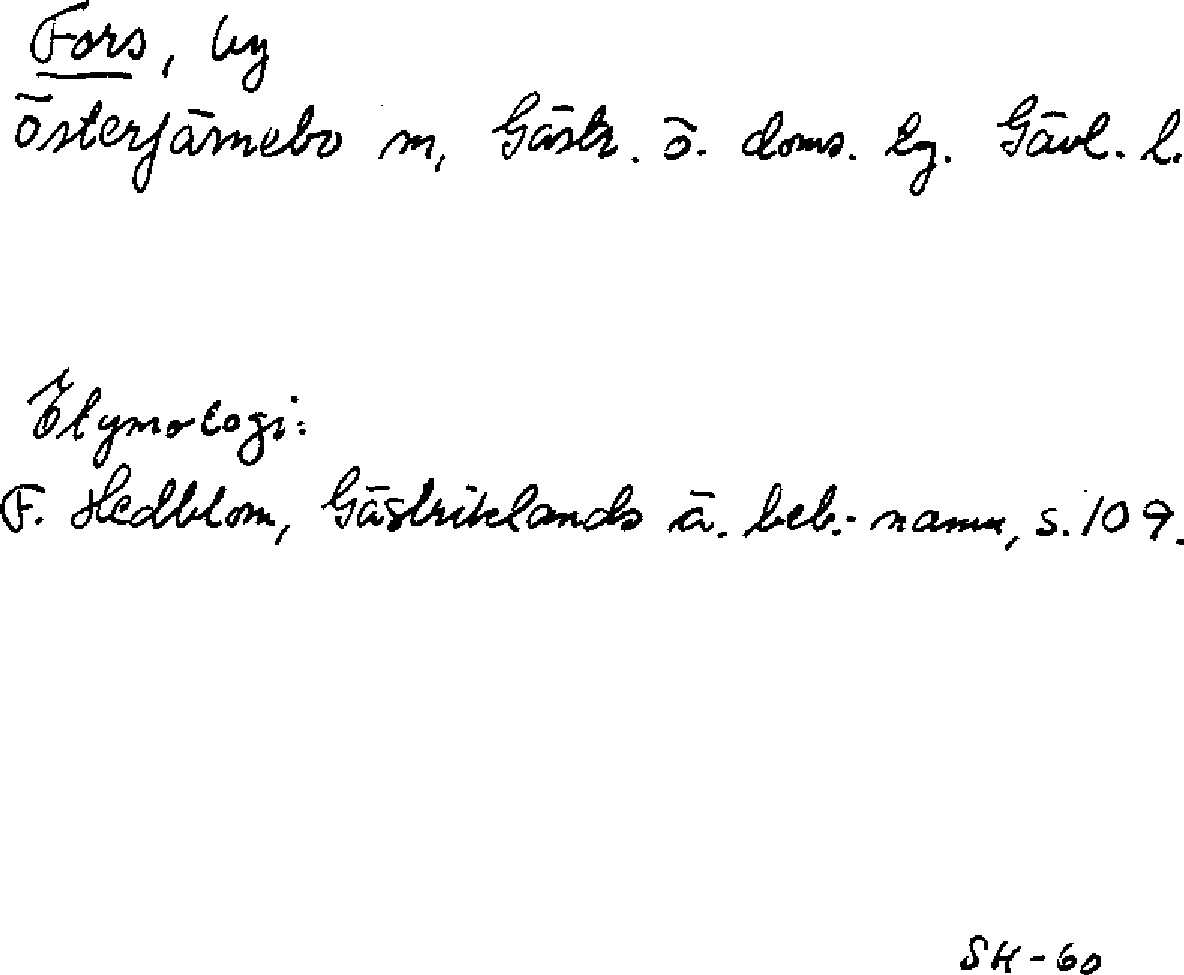 Fors, by
Österfärnebo sn, Gästr. ö. doms. lg. Gävl. l.
Etymologi:
F. Hedblom, Gästriklands ä. beb.-namn, s. 109.
SH-60